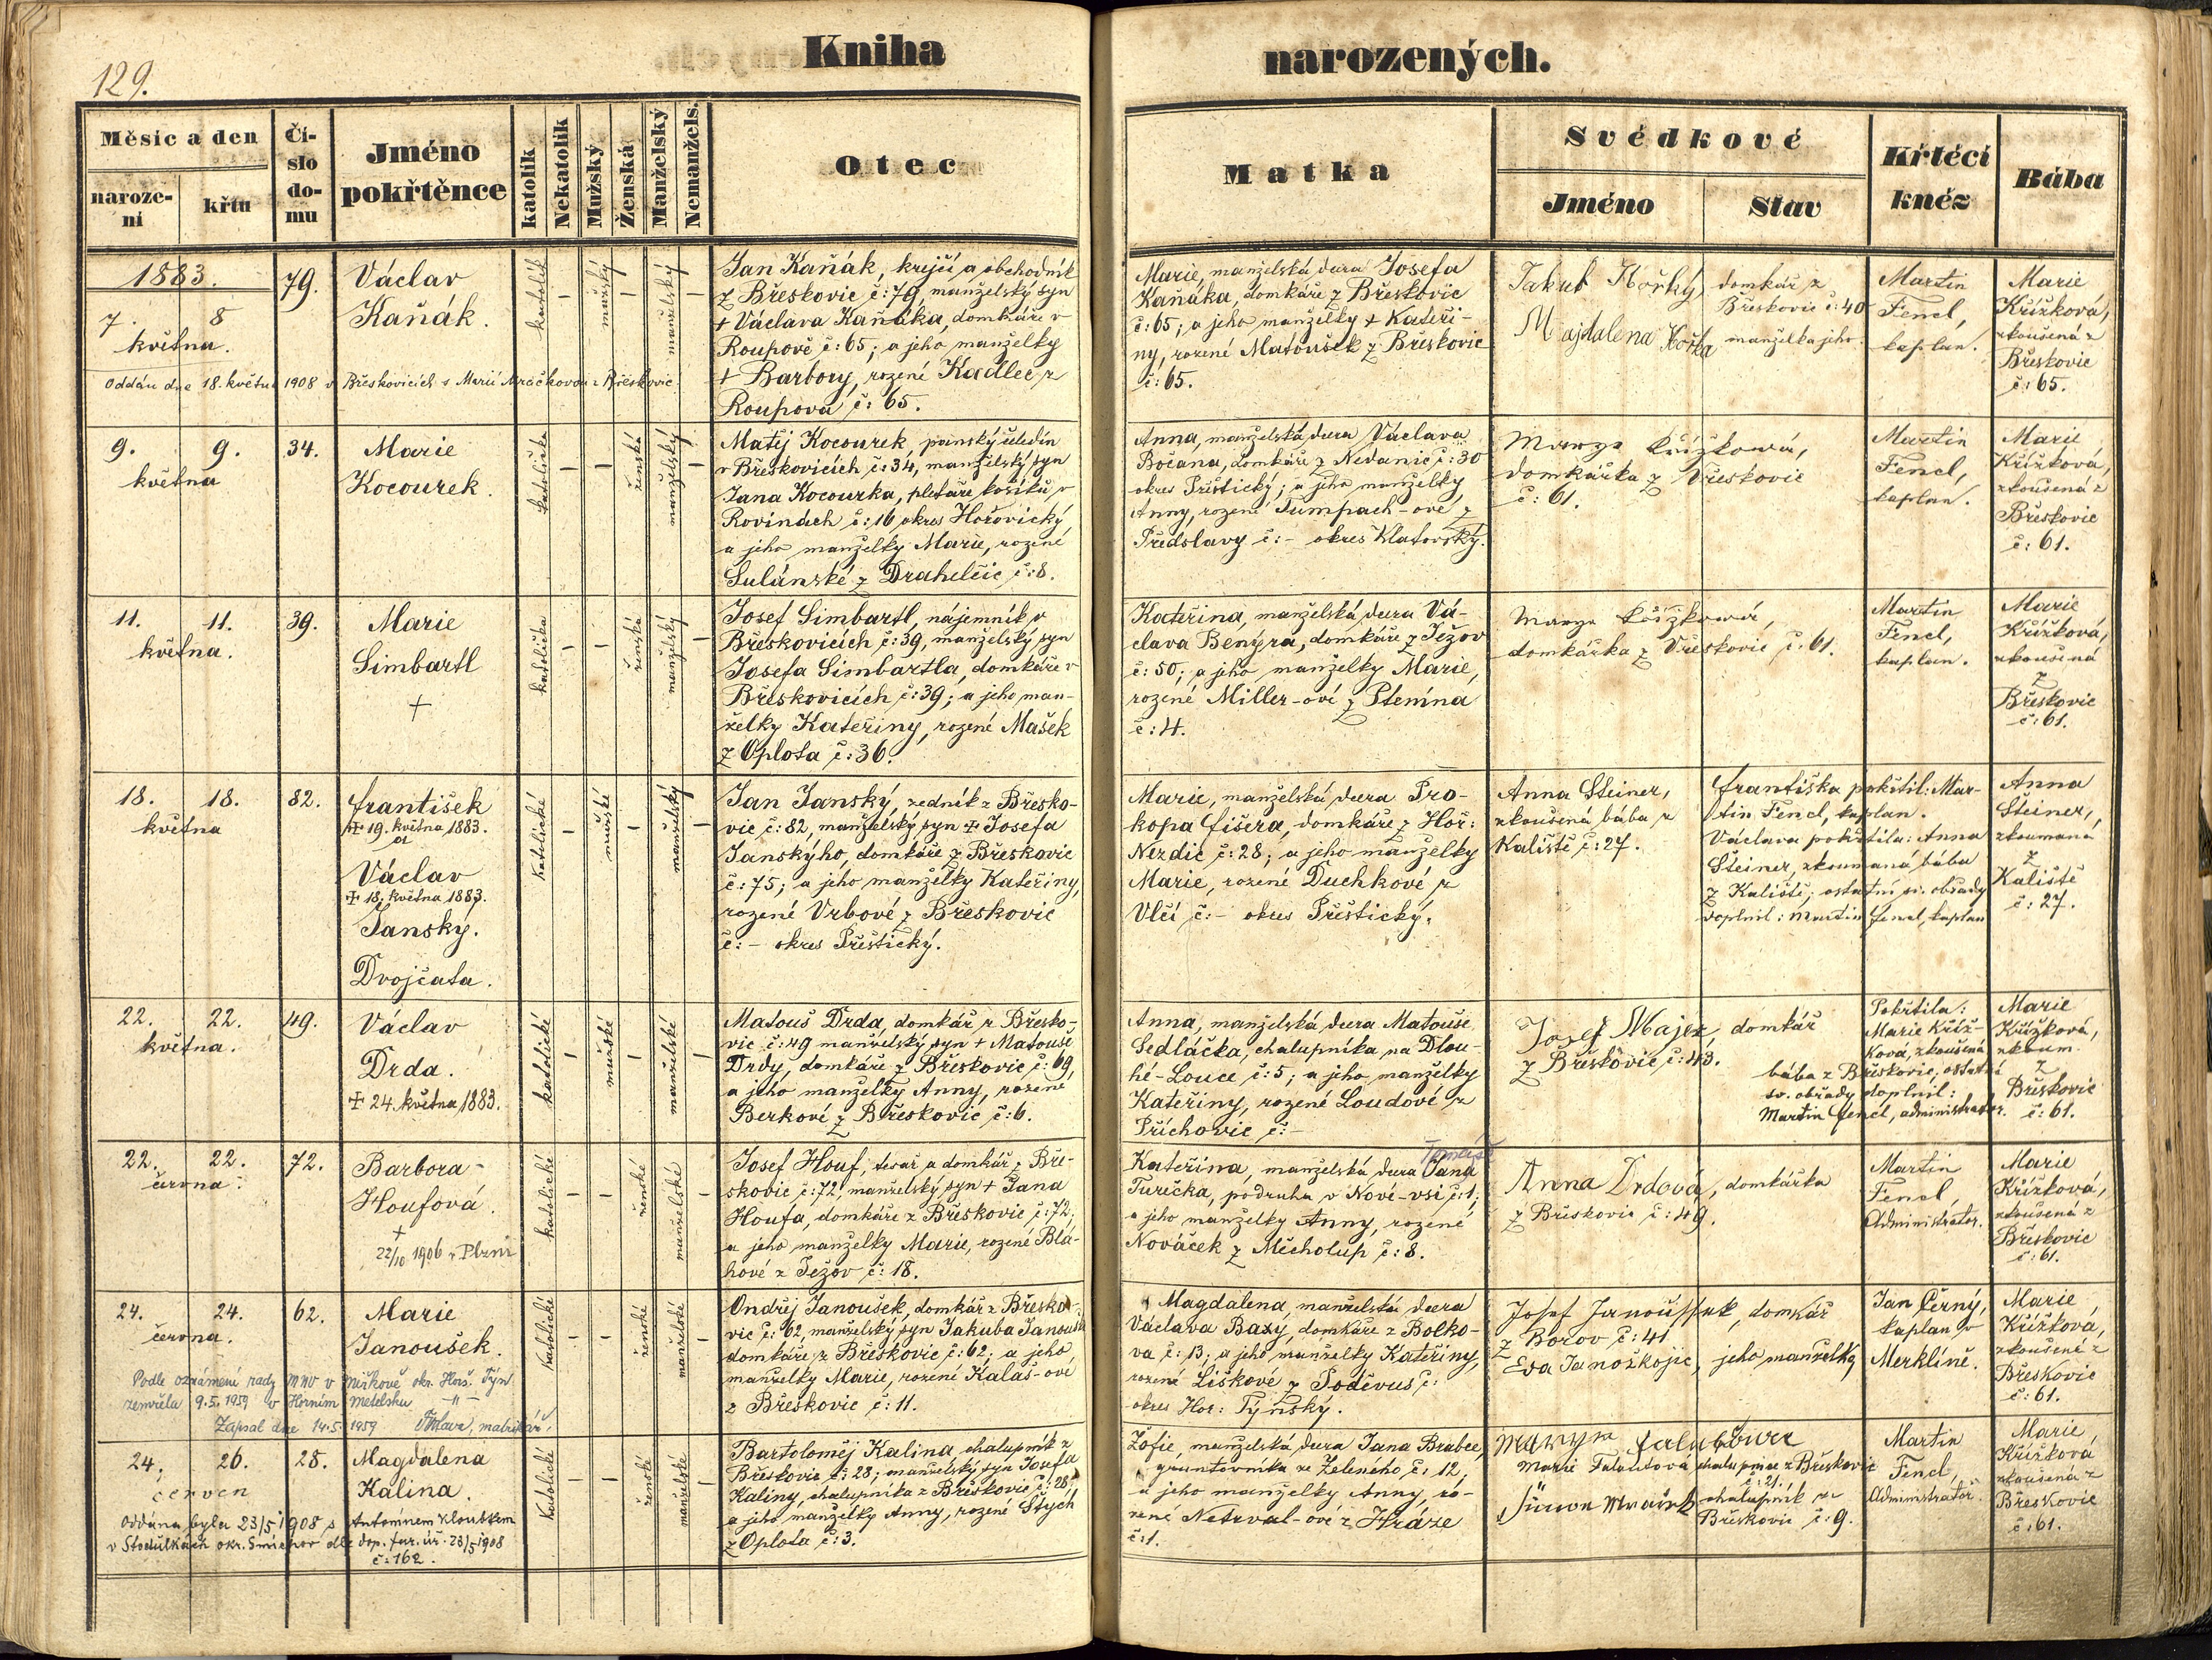 Kniha
narozených.
129.
Měsíc a den
naroze-
ní
křtu
Čí-
slo
do-
mu
Jméno
pokřtěnce
katolík
Nekatolík
Mužský
Ženská
Manželský
Nemanžels.
Otec
Matka
Svědkové
Jméno
Stav
Křtěcí
kněz
Bába
1883.
7. 8
května.
79.
Václav
Kaňák.
katolík
–
mužský
–
manželský
–
Jan Kaňák, krejčí a obchodník
z Břeskovic č: 79, manželský syn
+ Václava Kaňáka, domkáře v
Roupově č: 65; a jeho manželky
+ Barbory, rozené Kadlec z
Roupova č: 65.
Marie, manželská dcera Josefa
Kaňáka, domkáře z Břeskovic
č: 65; a jeho manželky + Kateři-
ny, rozené Matoušek z Břeskovic
č: 65.
Jakub Hořký, domkář z
Břeskovic č: 40
Majdalena Hořka manželka jeho.
Martin
Fencl,
kaplan.
Marie
Křížková,
zkoušená z
Břeskovic
č: 65.
Oddán dne 18. května 1908 v Břeskovicích s Marií Mráčkovou z Břeskovic
9. 9.
května
34.
Marie
Kocourek.
katolička
–
–
ženská
manželský
–
Matěj Kocourek, panský čeledín
v Břeskovicích č: 34, manželský syn
Jana Kocourka, pletaře košíků v
Rovinách č: 16 okres Hořovický,
a jeho manželky Marie, rozené
Sulánské z Drahelčic č: 8.
Anna, manželská dcera Václava
Bočana, domkáře z Nedanic č: 30
okres Přeštický; a jeho manželky
Anny, rozené Tumpach-ové z
Předslavy č: – okres Klatovský.
Marye Křížková,
domkářka z Břeskovic
č: 61.
Martin
Fencl,
kaplan.
Marie
Křížková,
zkoušená z
Břeskovic
č: 61.
11. 11.
května.
39.
Marie
Simbartl
+
katolička
–
–
ženská
manželský
–
Josef Simbartl, nájemník v
Břeskovicích č: 39, manželský syn
Josefa Simbartla, domkáře v
Břeskovicích č: 39; a jeho man-
želky Kateřiny, rozené Mašek
z Oplota č: 36.
Kateřina, manželská dcera Vá-
clava Benýra, domkáře z Ježov
č: 50; a jeho manželky Marie,
rozené Miller-ové z Ptenína
č: 4.
Marye Křížková,
domkářka z Břeskovic č: 61.
Martin
Fencl,
kaplan.
Marie
Křížková,
zkoušená
z
Břeskovic
č: 61.
18. 18.
května
82.
František
+ 19. května 1883.
a
Václav
+ 18. května 1883.
Janský.
Dvojčata.
katolické
–
mužské
–
manželský
–
Jan Janský, zedník z Břesko-
vic č: 82, manželský syn + Josefa
Janskýho, domkáře z Břeskovic
č: 75; a jeho manželky Kateřiny,
rozené Vrbové z Břeskovic
č: – okres Přeštický.
Marie, manželská dcera Pro-
kopa Fišera, domkáře z Hoř:
Nezdic č: 28; a jeho manželky
Marie, rozené Duchkové z
Vlčí č: – okres Přeštický.
Anna Steiner,
zkoušená bába z
Kaliště č: 27.
Františka pokřtil: Mar-
tin Fencl, kaplan.
Václava pokřtila: Anna
Steiner, zkoumaná bába
z Kaliště; ostatní sv. obřady
doplnil: Martin Fencl, kaplan
Anna
Steiner,
zkoumaná
z
Kaliště
č: 27.
22. 22.
května.
49.
Václav
Drda.
+ 24. května 1883.
katolické
–
mužské
–
manželské
–
Matouš Drda, domkář z Břesko-
vic č: 49 manželský syn + Matouše
Drdy, domkáře z Břeskovic č: 69,
a jeho manželky Anny, rozené
Berkové z Břeskovic č: 6.
Anna, manželská dcera Matouše
Sedláčka, chalupníka na Dlou-
hé-Louce č: 5; a jeho manželky
Kateřiny, rozené Loudové z
Příchovic č: –
Josef Majer, domkář
z Břeskovic č: 43.
Pokřtila:
Marie Kříž-
ková, zkoušená
bába z Břeskovic; ostatní
sv. obřady doplnil:
Martin Fencl, administrator.
Marie
Křížková,
zkoum.
z
Břeskovic
č: 61.
22. 22.
června.
72.
Barbora
Houfová.
+
22/10 1906 v Plzni
katolické
–
–
ženské
manželské
–
Josef Houf, tesař a domkář z Bře-
skovic č: 72, manželský syn + Jana
Houfa, domkáře z Břeskovic č: 72,
a jeho manželky Marie, rozené Blá-
hové z Ježov č: 18.
Tomáše
Kateřina, manželská dcera Jana
Turečka, podruha v Nové-vsi č: 1;
a jeho manželky Anny, rozené
Nováček z Měcholup č: 8.
Anna Drdová, domkářka
z Břeskovic č: 49.
Martin
Fencl,
Administrator.
Marie
Křížková,
zkoušená z
Břeskovic
č: 61.
24. 24.
června.
62.
Marie
Janoušek.
katolické
–
–
ženské
manželské
–
Ondřej Janoušek, domkář z Břesko-
vic č: 62, manželský syn Jakuba Janouška
domkáře z Břeskovic č: 62; a jeho
manželky Marie, rozené Kalaš-ové
z Břeskovic č: 11.
Magdalena, manželská dcera
Václava Baxy, domkáře z Bolko-
va č: 13; a jeho manželky Kateřiny,
rozené Liškové z Poděvus č:
okres Hor: Týnský.
Josef Janoušek, domkář
z Borov č: 41
Eva jeho manželka,
Jan Černý,
kaplan v
Merklíně.
Marie
Křížková,
zkoušená z
Břeskovic
č: 61.
Podle oznámení rady MNV v okr. Horš. Týn
zemřela 9.5.1959 v Horním Metelsku –"–
Zapsal dne 14.5.1959 matrikář.
24. 26.
červen
28.
Magdalena
Kalina.
katolické
–
–
ženské
manželské
–
Bartoloměj Kalina, chalupník z
Břeskovic č: 28; manželský syn Josefa
Kaliny, chalupníka z Břeskovic č: 28,
a jeho manželky Anny, rozené Štých
z Oplota č: 3.
Žofie, manželská dcera Jana Brabec,
gruntovníka ze Zeleného č: 12,
a jeho manželky Anny, ro-
zené Netrval-ové z Hráze
č: 1.
Marie chalupnice z Břeskovic
č: 21.
Šimon chalupník z
Břeskovic č: 9.
Martin
Fencl,
Administrator.
Marie
Křížková
zkoušená z
Břeskovic
č: 61.
Oddána byla 23/5 1908 s Antonínem Kloubkem
v Stodůlkách okr. Smíchov dle dop. far. úř. 23/5 1908
č: 162.